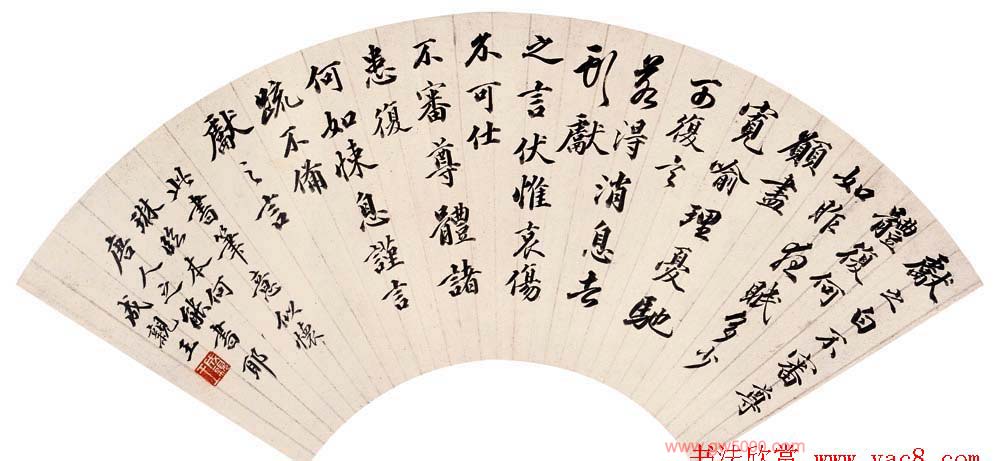 獻之白不審尊
體復何
如昨夜眠多少
願盡
寬喻理憂馳
可復言
若得消息去
獻
之言伏惟哀傷
不可仕
不審尊體諸
患復
何如悚息謹言
疏不備
獻之言
此書筆意似懷
琳臨本何能書耶
唐人之
成親王
www.gw5000.com
书法欣赏 www.yac8.com